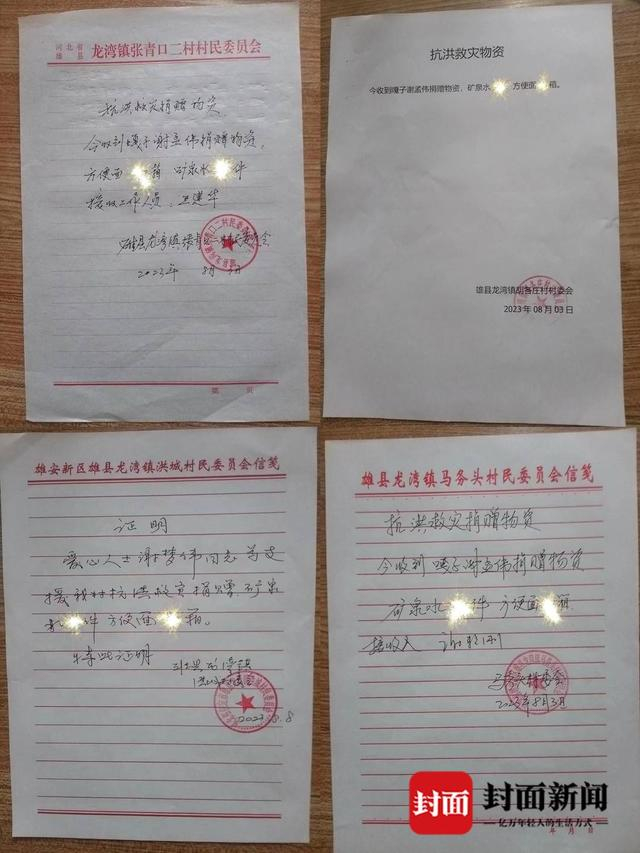 河北省
雄县
龙湾镇张青口二村村民委员会
抗洪救灾捐赠物资
今收到嘎子谢孟伟捐赠物资,
方便面 箱 矿泉水 件
接收工作人员:
雄县龙湾镇张青口二村村民委员会
2023年 8月 3日
第 页
抗洪救灾物资
今收到嘎子谢孟伟捐赠物资,矿泉水 方便面 箱。
雄县龙湾镇胡各庄村村委会
2023年08月03日
雄安新区雄县龙湾镇洪城村民委员会信笺
证明
爱心人士谢梦伟同志为支
援我村抗洪救灾捐赠矿泉
水 件 方便面 箱。
特此证明
2023.8.8
雄县龙湾镇马务头村民委员会信笺
抗洪救灾捐赠物资
今收到 嘎子谢孟伟捐赠物资
矿泉水 件 方便面 箱
接收人
马务头村委会
2023年8月3日
年 月 日
封面
封面新闻
亿万年轻人的生活方式